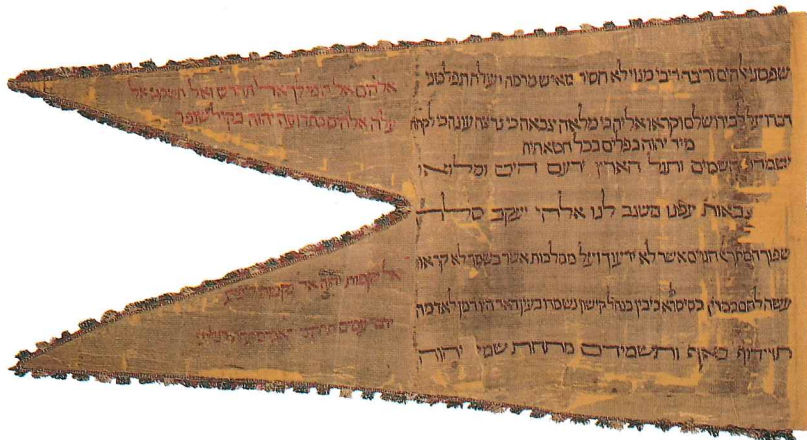 שפטני אלהים וריבה ריבי מגוי לא חסיד מאיש מרמה ועולה תפלטני
דברו על לב ירושלם וקראו אליה כי מלאה צבאה כי נרצה עונה כי לקחה
מיד יהוה כפלים בכל חטאתיה
ישמחו השמים ותגל הארץ ירעם הים ומלואו
צבאות עמנו משגב לנו אלהי יעקב סלה
שפוך חמתך אשר לא ידעוך ועל ממלכות אשר בשמך לא קראו
עשה להם כמדין כסיסרא כיבין בנחל קישון נשמדו בעין דאר היו דמן לאדמה
תרדוף באף ותשמידם מתחת שמי יהוה
אלהים אל דמי לך אל תחרש ואל תשקט אל
עלה אלהים בתרועה יהוה בקול שופר
אל נקמות יהוה אל נקמות הופיע
ידבר עמים תחתינו